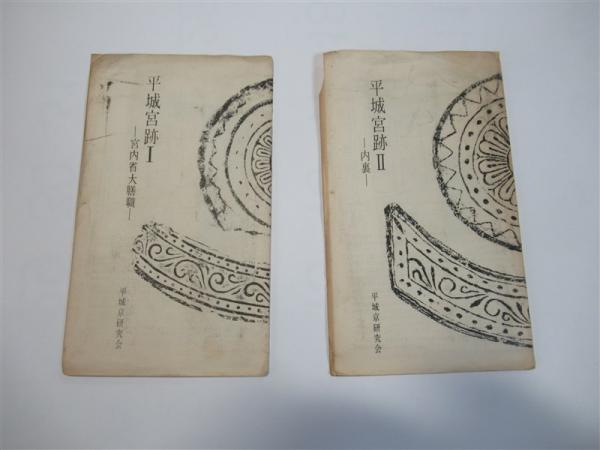 平城宮跡Ⅰ
―宮内省大膳職―
平城京研究会
平城宮跡Ⅱ
―内裏―
平城京研究会